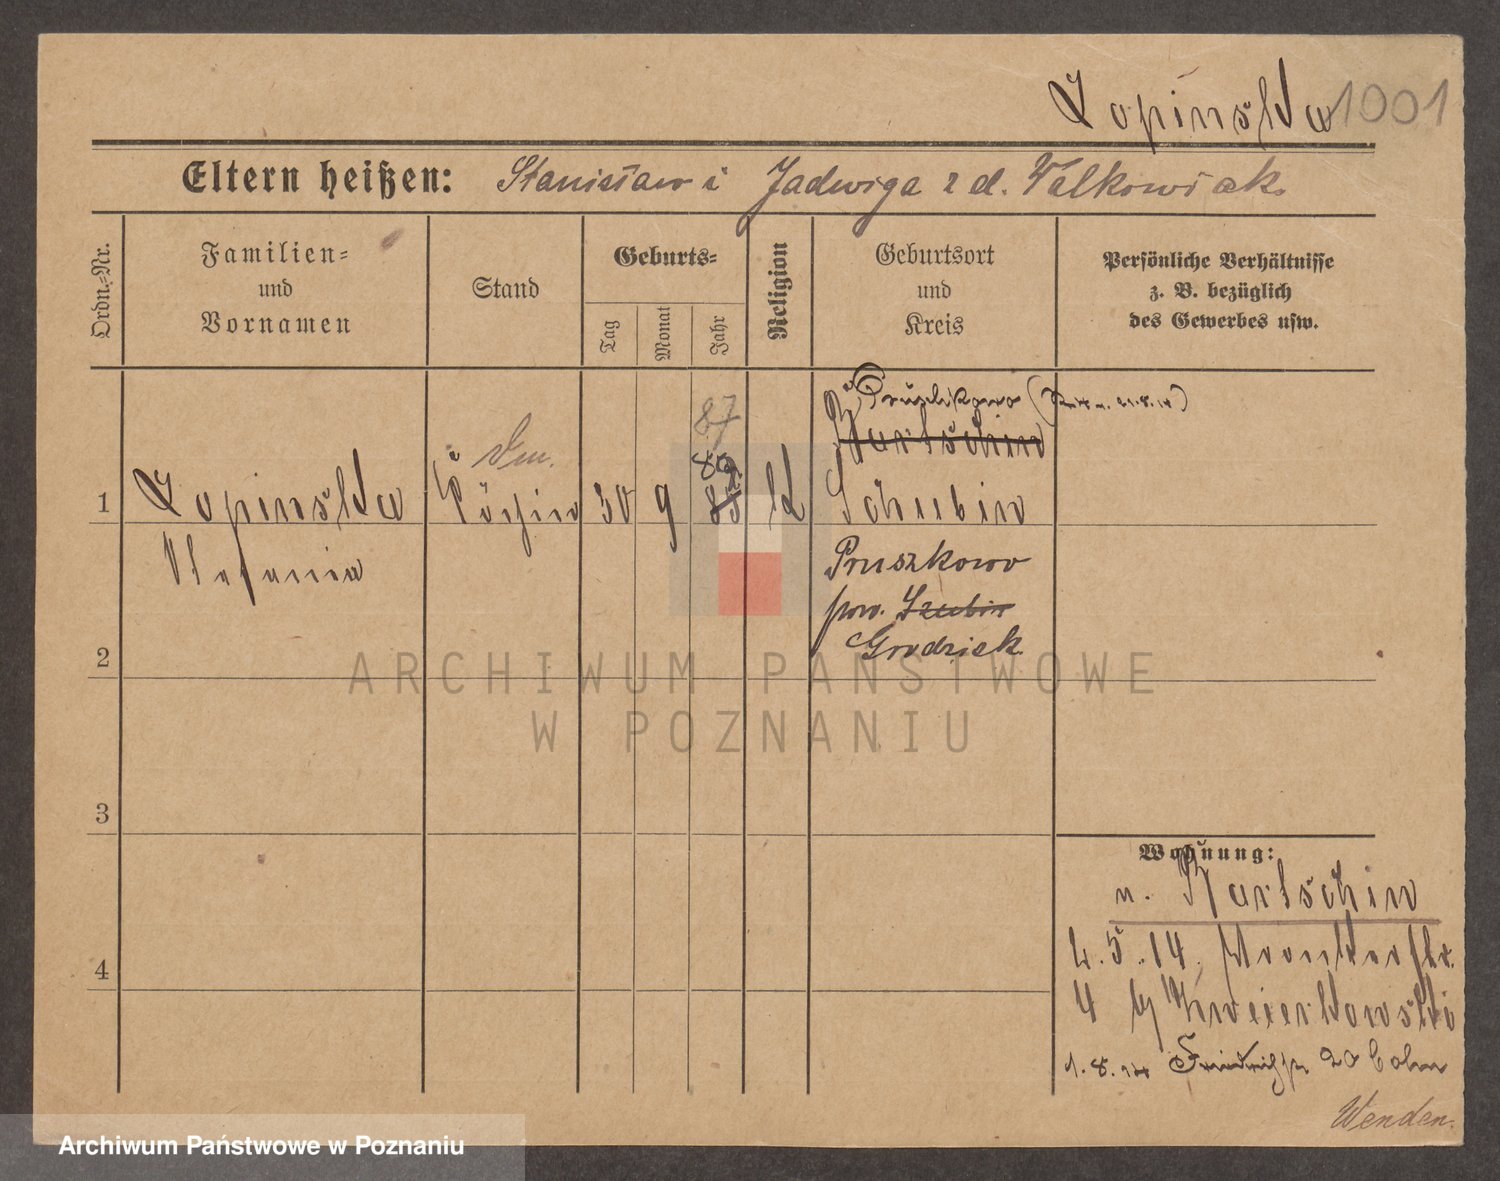 Lopinska 1001
Eltern heißen: Stanisław i Jadwiga z d. Walkowiak.
Ordn.-Nr.
Familien-
und
Vornamen
Stand
Geburts-
Tag
Monat
Jahr
Religion
Geburtsort
und
Kreis
Persönliche Verhältnisse
z. B. bezüglich
des Gewerbes usw.
87
Pruschkowo
Bartschin
85
1
Lopinska
Köchin
30
9
85
K
Schubin
Stefania
Pruszkowo
pow. Szubin
2
Grodzisk
3
Wohnung:
n. Bartschin
2.5.14.
4
4 b/
1.8.14 Friedrichstr 20
Wenden.
ARCHIWUM PAŃSTWOWE
W POZNANIU
Archiwum Państwowe w Poznaniu